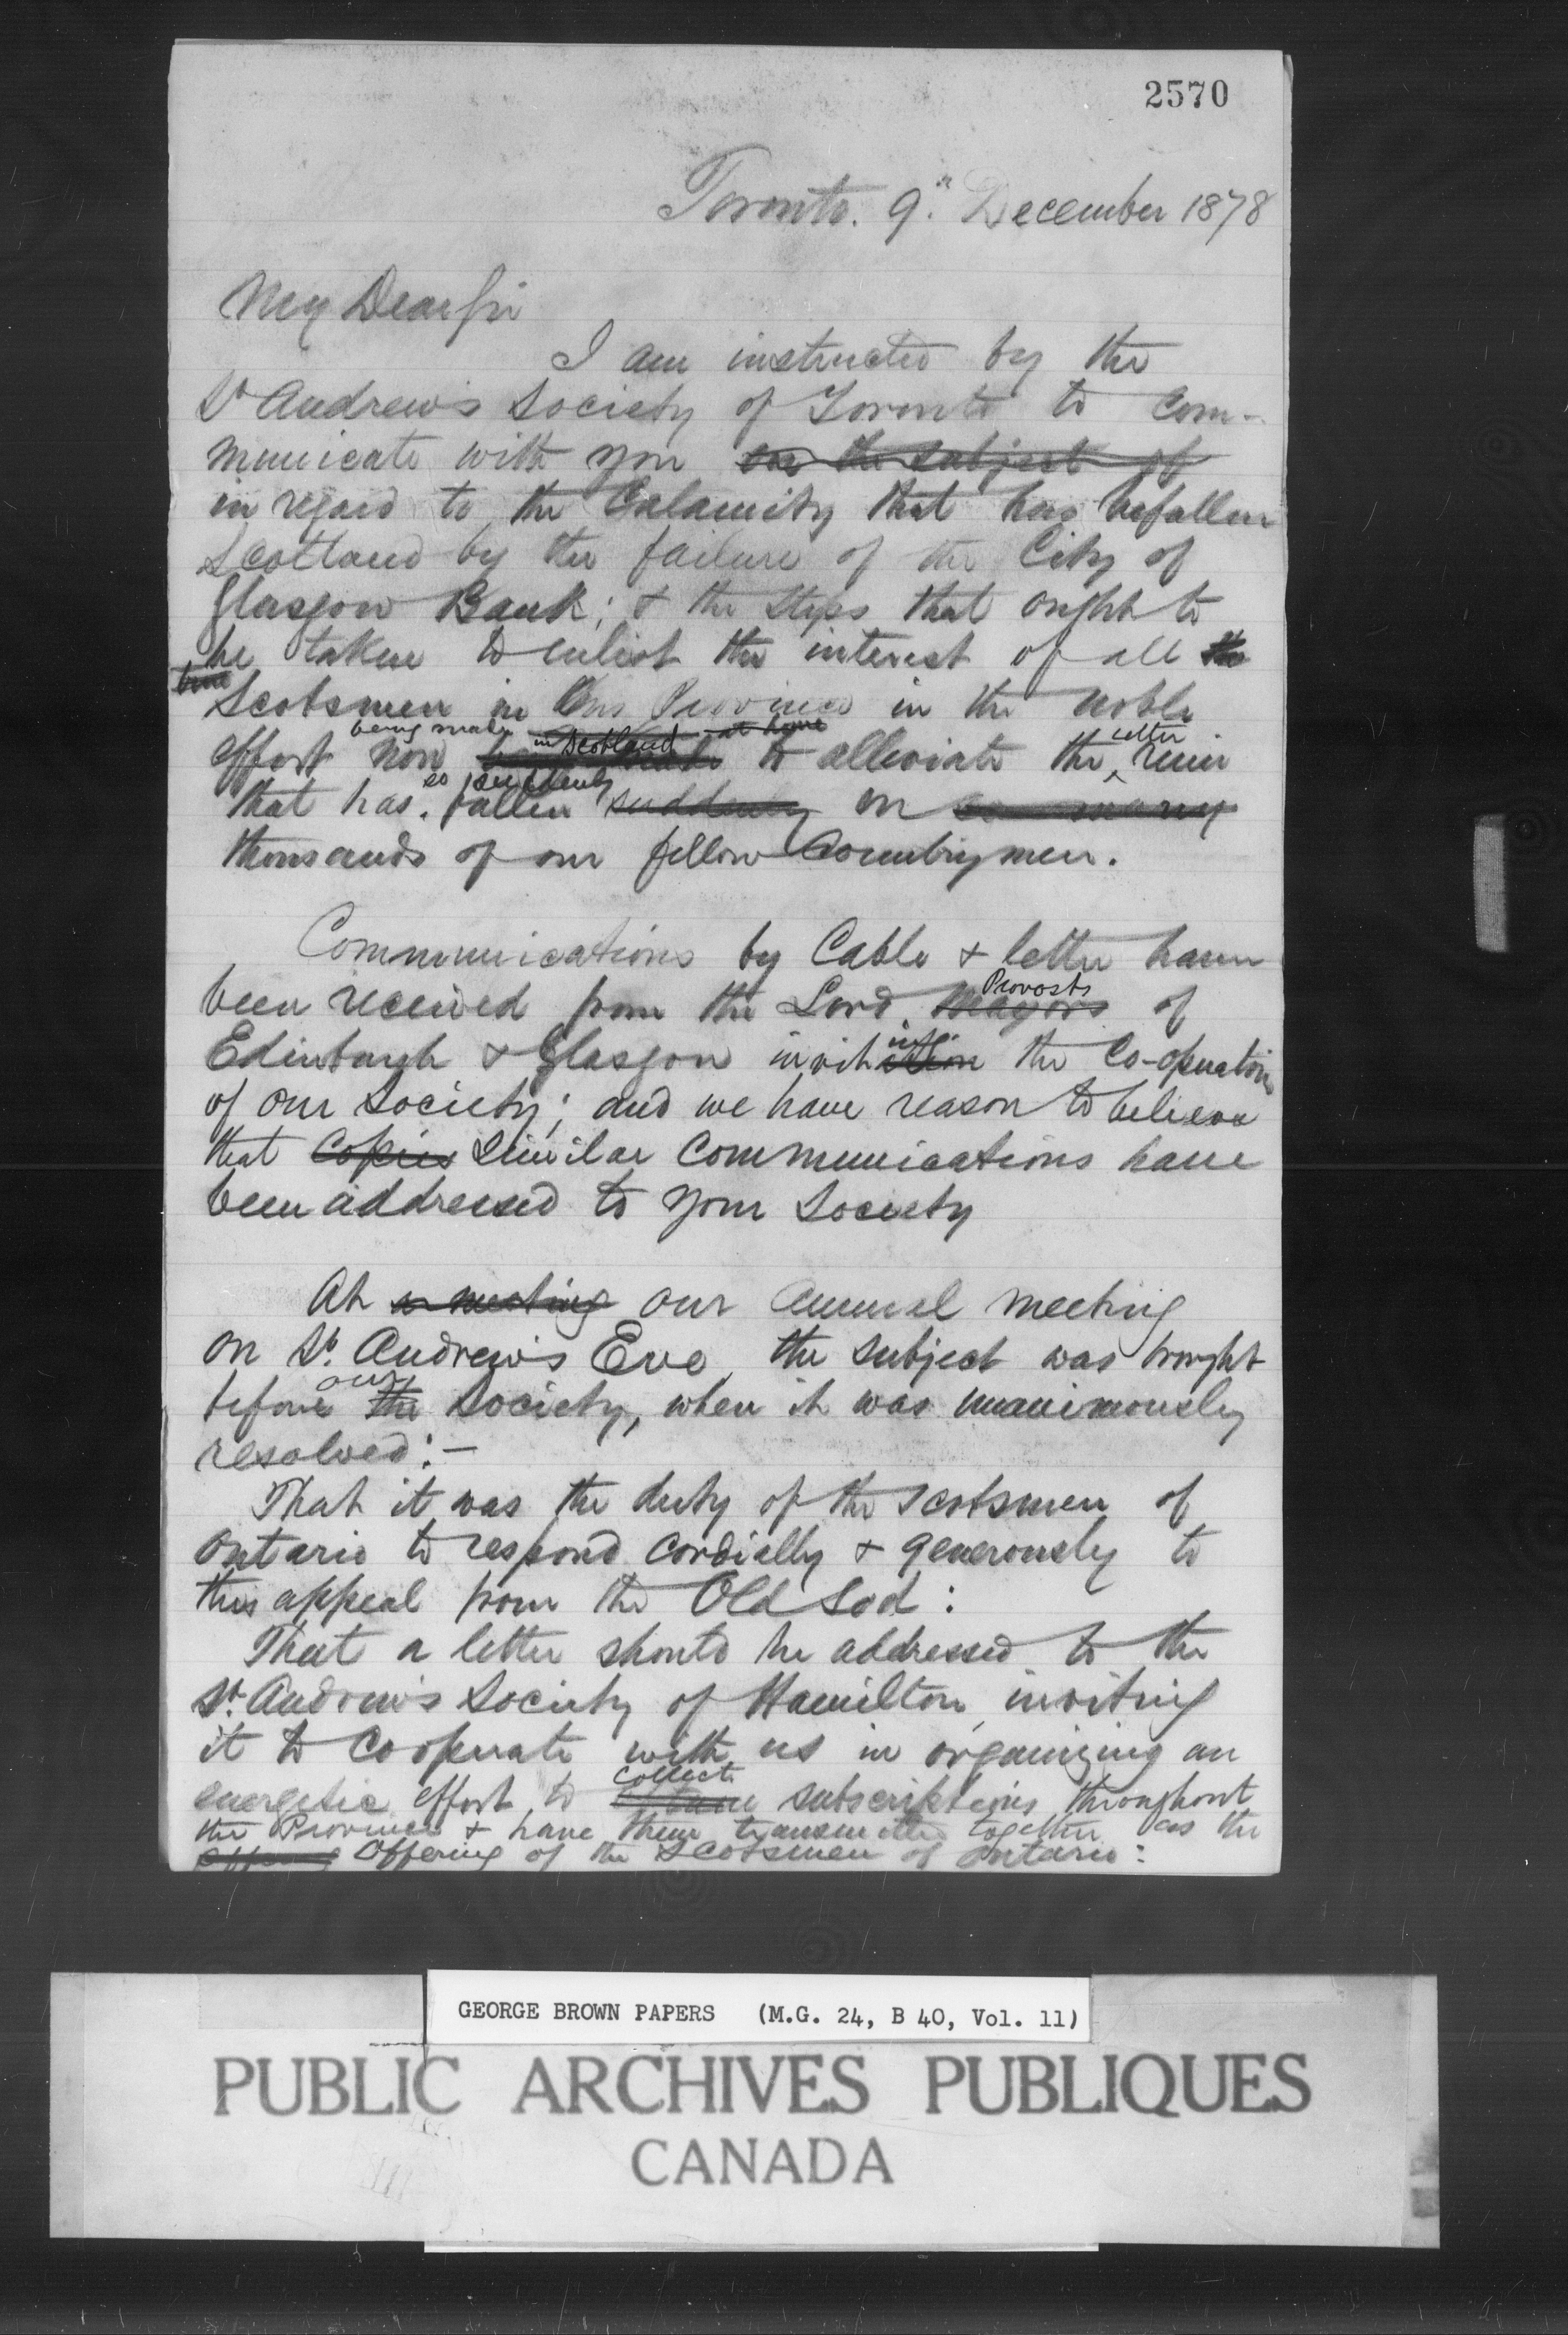 2570
Toronto. 9th December 1878
My Dear Sir
I am instructed by the
St Andrew's Society of Toronto to com-
municate with you on the subject of
in regard to the Calamity that has befallen
Scotland by the failure of the City of
Glasgow Bank; & the steps that ought to
be taken to enlist the interest of all the
true
Scotsmen in this Province in the noble
being made in Scotland at home utter
effort now to alleviate the ruin
so suddenly
that has fallen suddenly on so many
thousands of our fellow Countrymen.
Communications by Cable & letter have
Provosts
been received from the Lord Mayors of
ing
Edinburgh & Glasgow invitation the Co-operation
of our Society; and we have reason to believe
that Copies Similar Communications have
been addressed to your Society
At a meeting our Annual meeting
on St. Andrew's Eve the subject was brought
our
before the Society, when it was unanimously
resolved:—
That it was the duty of the Scotsmen of
Ontario to respond cordially & generously to
this appeal from the Old Sod:
That a letter should be addressed to the
St. Andrew's Society of Hamilton, inviting
it to Cooperate with us in organizing an
collect
energetic effort to subscriptions throughout
the Province & have them transmitted together as the
Offering of the Scotsmen of Ontario:
GEORGE BROWN PAPERS (M.G. 24, B 40, Vol. 11)
PUBLIC ARCHIVES PUBLIQUES
CANADA